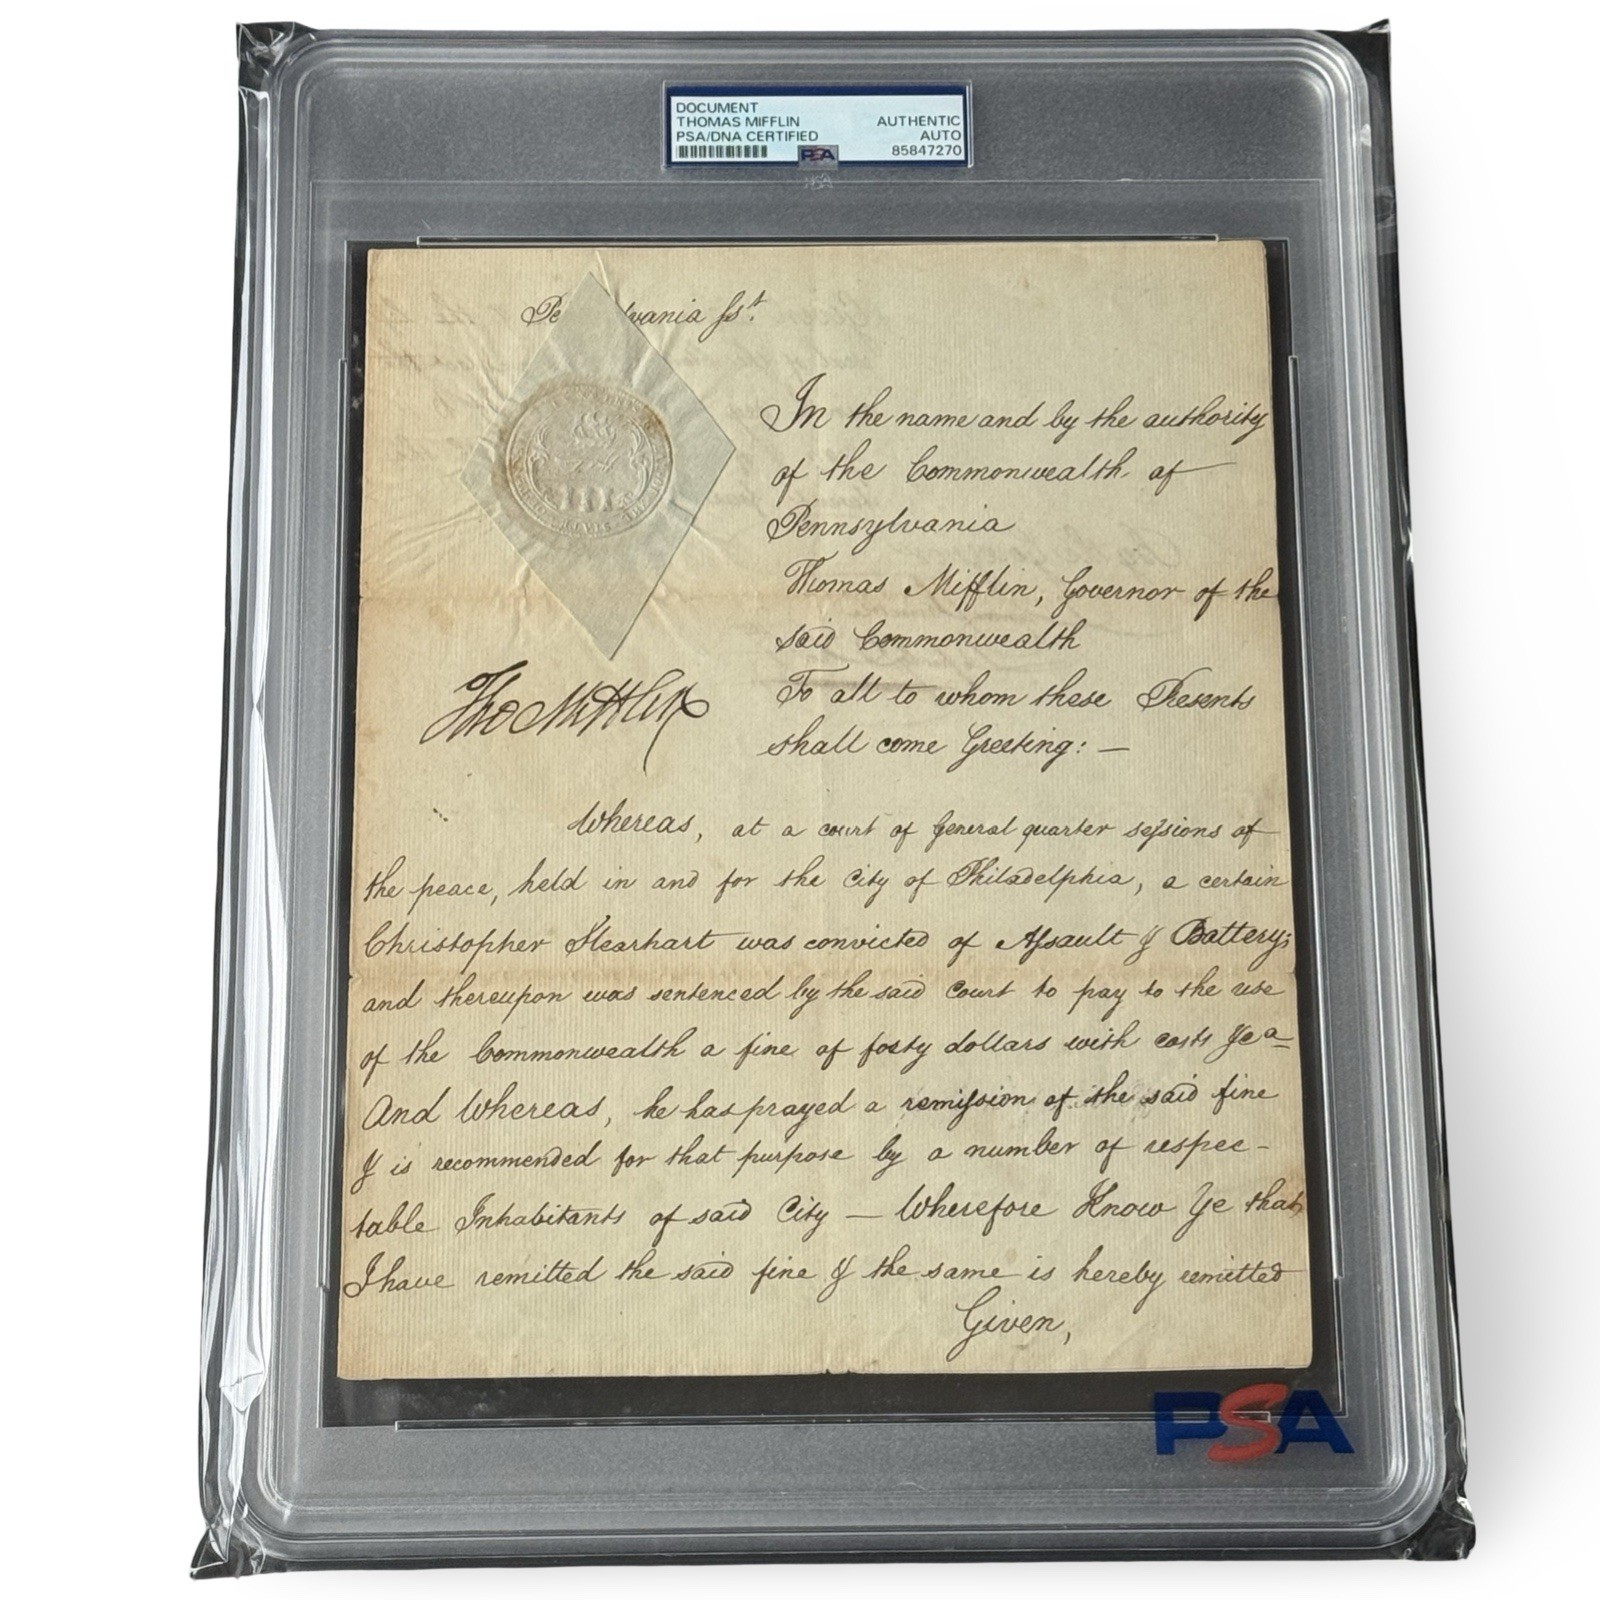 DOCUMENT
THOMAS MIFFLIN
PSA/DNA CERTIFIED
AUTHENTIC
AUTO
85847270
PSA
Pe lvania ſs.t
In the name and by the authority
of the Commonwealth of
Pennsylvania
Thomas Mifflin, Governor of the
said Commonwealth
To all to whom these Presents
shall come Greeting: —
Tho Mifflin
Whereas, at a court of General quarter seſsions of
the peace, held in and for the City of Philadelphia, a certain
Christopher was convicted of Aſsault & Battery;
and thereupon was sentenced by the said Court to pay to the use
of the Commonwealth a fine of forty dollars with costs &c a
And Whereas, he has prayed a remiſsion of the said fine
& is recommended for that purpose by a number of respec-
table Inhabitants of said City — Wherefore Know Ye that
I have remitted the said fine & the same is hereby remitted
Given,
PSA